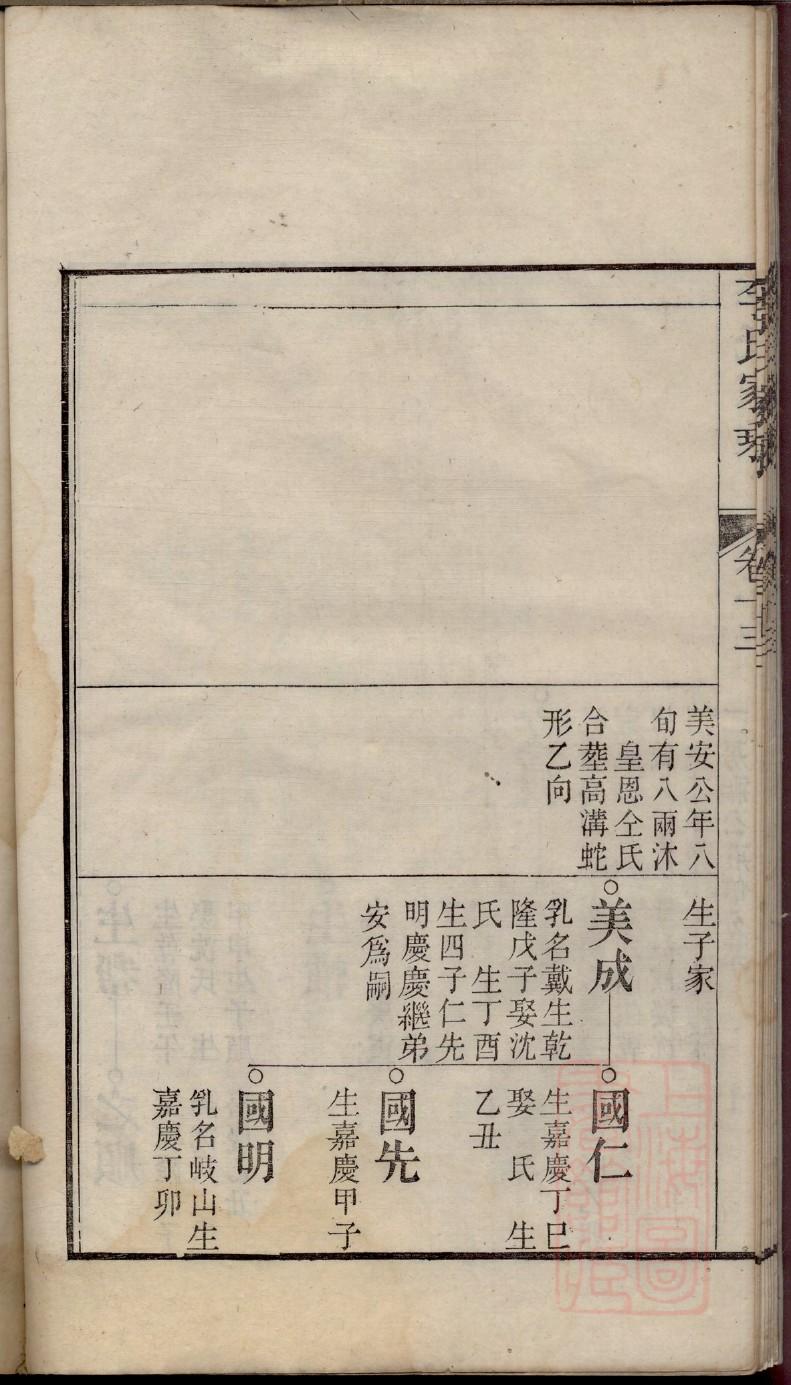 李氏家乘
卷十三
美安公年八
旬有八兩沐
皇恩仝氏
合塟高溝蛇
形乙向
生子家
美成
乳名戴生乾
隆戊子娶沈
氏　生丁酉
生四子仁先
明慶慶繼弟
安爲嗣
國仁
生嘉慶丁巳
娶　氏　生
乙丑
國先
生嘉慶甲子
國明
乳名岐山生
嘉慶丁卯